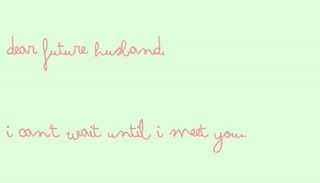 dear future husband,
i can't wait until i meet you..